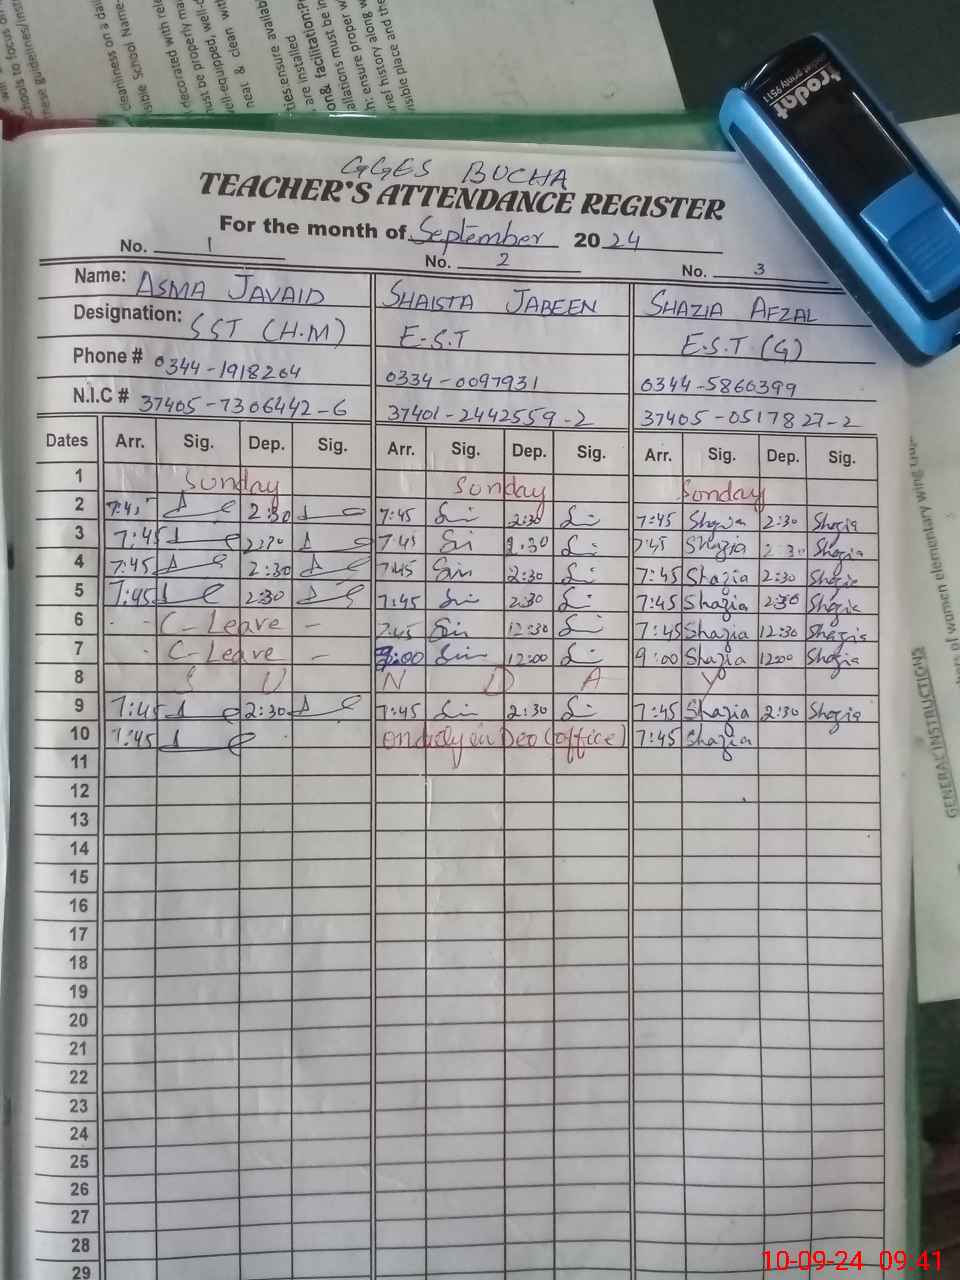 trodat
printy 9511
GGES BUCHA
TEACHER'S ATTENDANCE REGISTER
For the month of September 2024
No. 1 No. 2 No. 3
Name: ASMA JAVAID SHAISTA JABEEN SHAZIA AFZAL
Designation: SST (H.M) E.S.T E.S.T (G)
Phone # 0344-1918264 0334-0097931 0344-5860399
N.I.C # 37405-7306442-6 37401-2442559-2 37405-0517827-2
Dates Arr. Sig. Dep. Sig. Arr. Sig. Dep. Sig. Arr. Sig. Dep. Sig.
1 Sunday Sunday Sunday
2 2:30 7:45 2:30 7:45 Shazia 2:30 Shazia
3 7:45 2:30 7:45 2:30 7:45 Shazia 2:30 Shazia
4 7:45 2:30 7:45 2:30 7:45 Shazia 2:30 Shazia
5 7:45 2:30 7:45 2:30 7:45 Shazia 2:30 Shazia
6 - C-Leave - 7:45 12:30 7:45 Shazia 12:30 Shazia
7 - C-Leave - 12:00 9:00 Shazia 12:00 Shazia
8 S U N D A Y
9 7:45 2:30 7:45 2:30 7:45 Shazia 2:30 Shazia
10 7:45 on duty in Deo (office) 7:45 Shazia
11
12
13
14
15
16
17
18
19
20
21
22
23
24
25
26
27
28
29
GENERAL INSTRUCTIONS
of women elementary wing
10-09-24 09:41